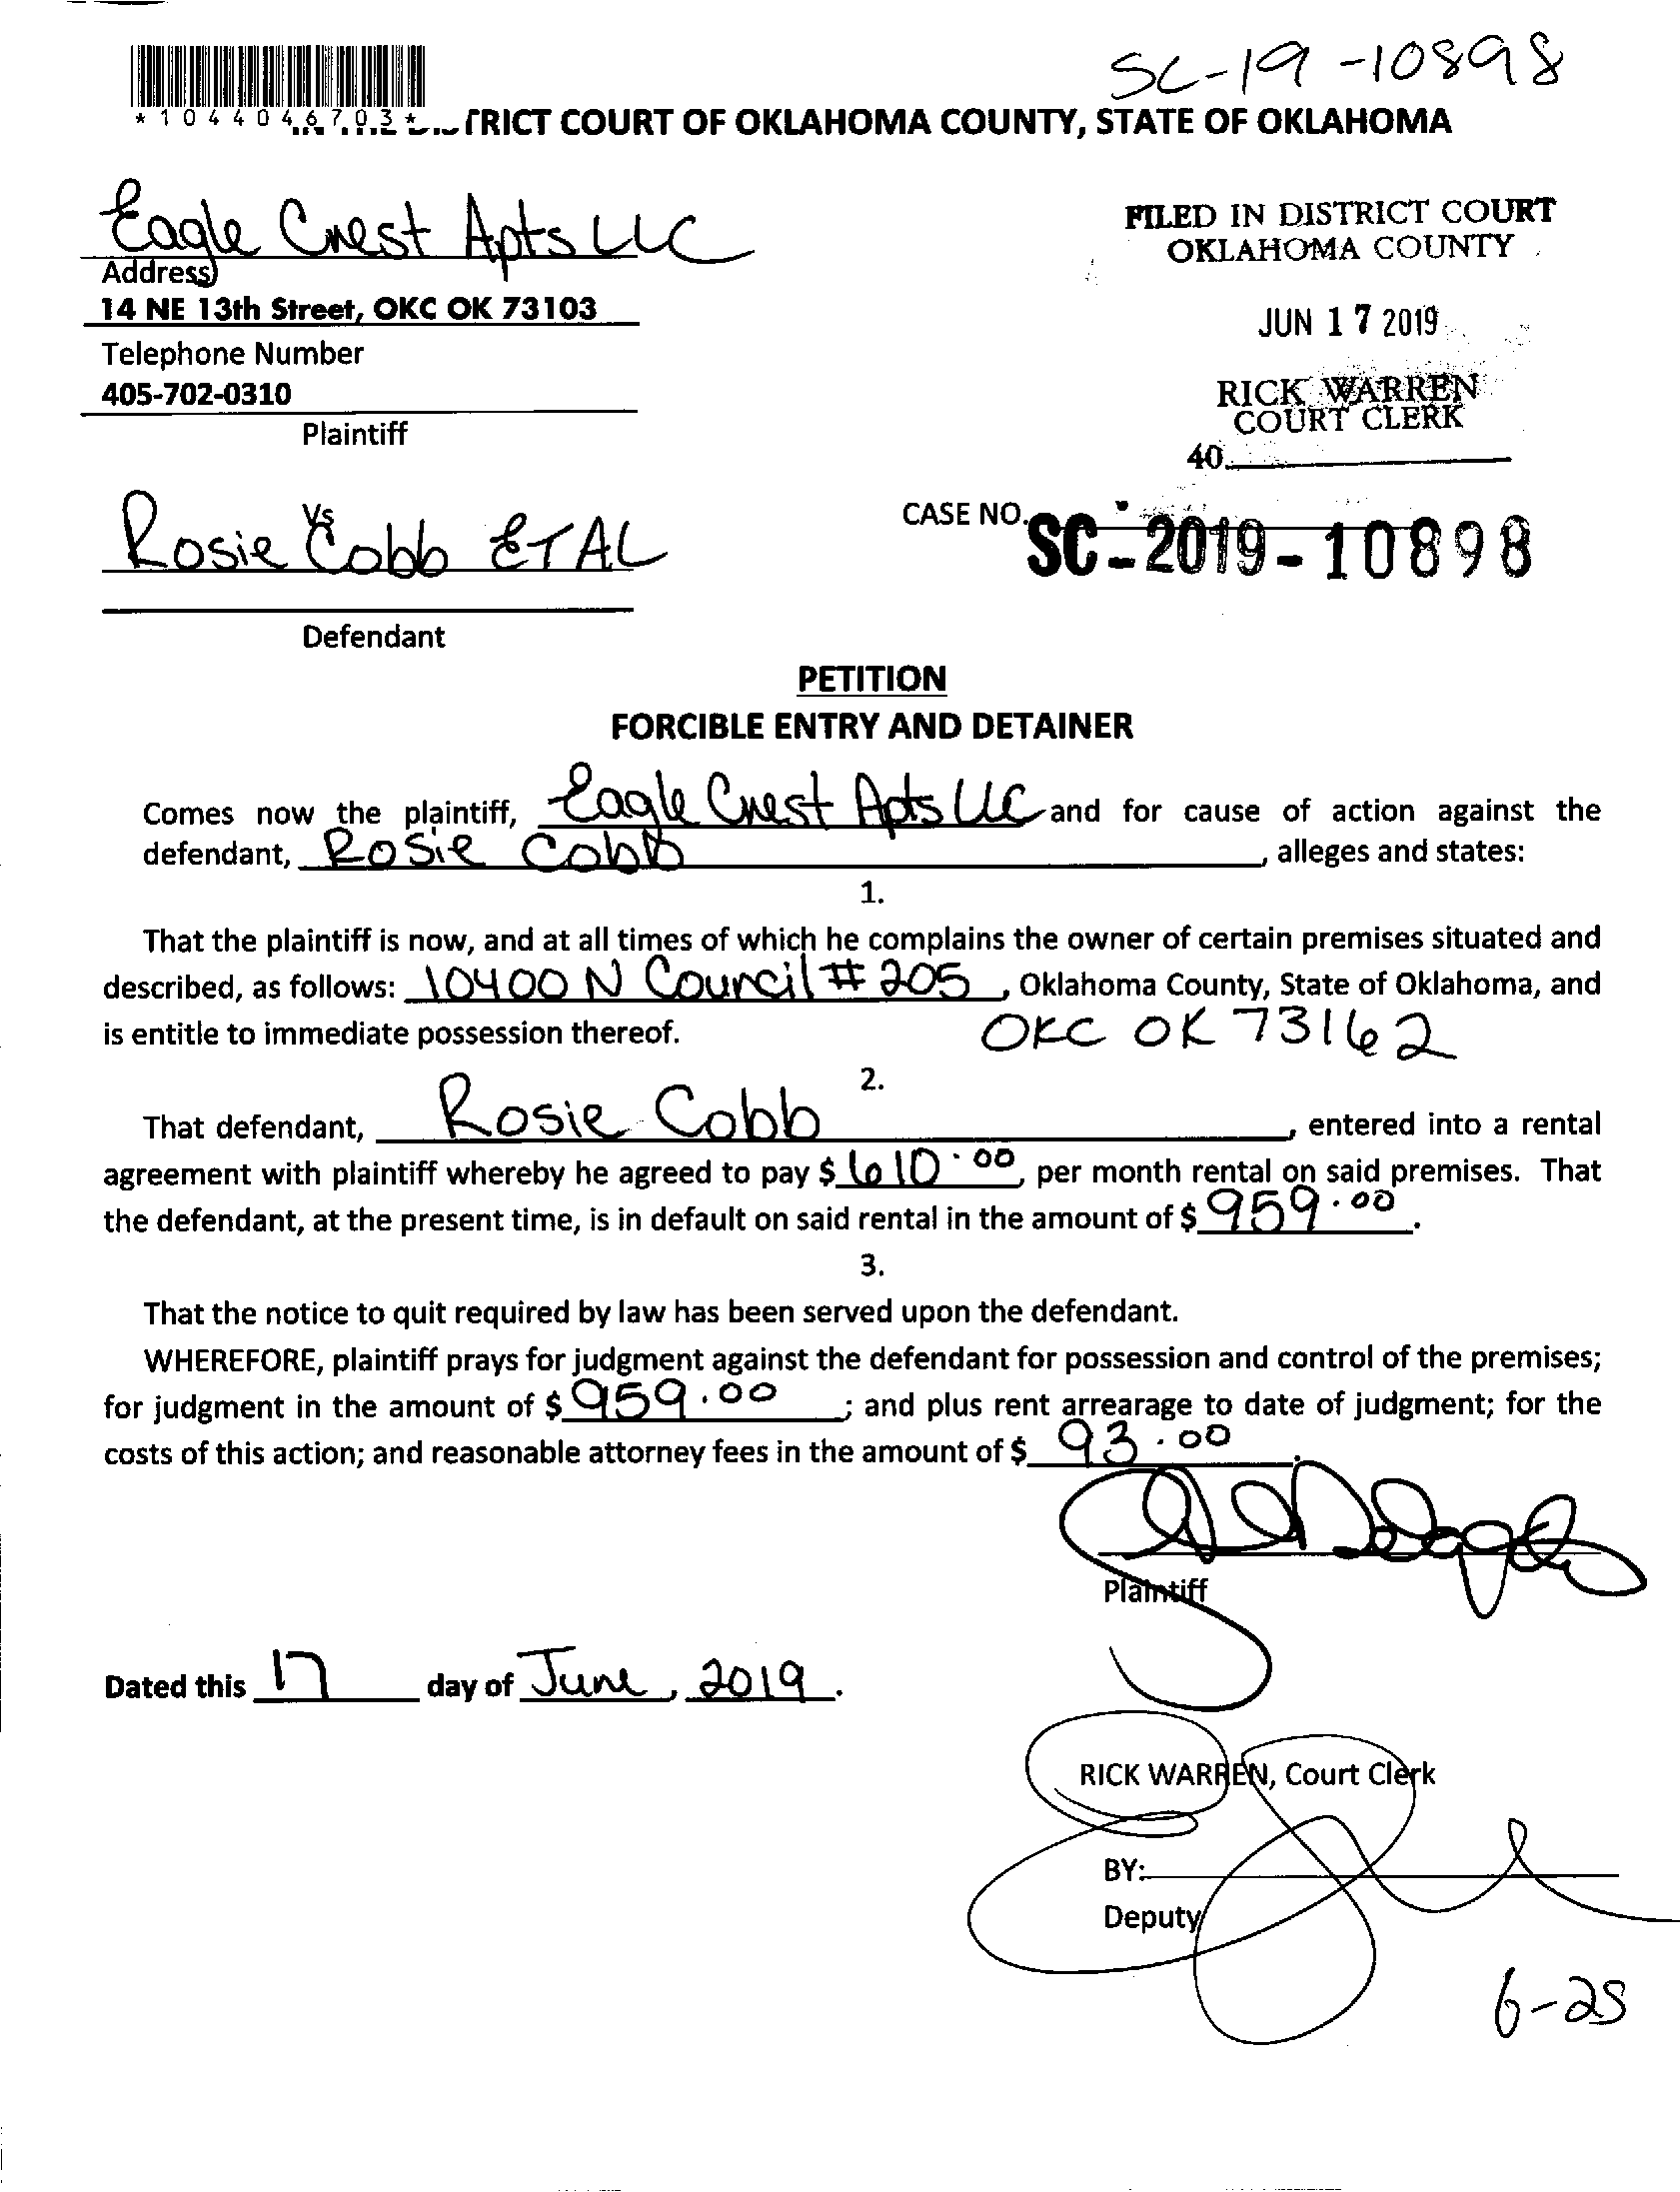 SC-19-10898
*1044046703*
TRICT COURT OF OKLAHOMA COUNTY, STATE OF OKLAHOMA
Eagle Crest Apts LLC
Address
14 NE 13th Street, OKC OK 73103
Telephone Number
405-702-0310
Plaintiff
FILED IN DISTRICT COURT
OKLAHOMA COUNTY
JUN 17 2019
RICK WARREN
COURT CLERK
40
Vs
Rosie Cobb ETAL
Defendant
CASE NO. SC-2019-10898
PETITION
FORCIBLE ENTRY AND DETAINER
Comes now the plaintiff, Eagle Crest Apts LLC and for cause of action against the
defendant, Rosie Cobb, alleges and states:
1.
That the plaintiff is now, and at all times of which he complains the owner of certain premises situated and
described, as follows: 10400 N Council # 205, Oklahoma County, State of Oklahoma, and
is entitle to immediate possession thereof. OKC OK 73162
2.
That defendant, Rosie Cobb, entered into a rental
agreement with plaintiff whereby he agreed to pay $ 610.00, per month rental on said premises. That
the defendant, at the present time, is in default on said rental in the amount of $ 959.00.
3.
That the notice to quit required by law has been served upon the defendant.
WHEREFORE, plaintiff prays for judgment against the defendant for possession and control of the premises;
for judgment in the amount of $ 959.00; and plus rent arrearage to date of judgment; for the
costs of this action; and reasonable attorney fees in the amount of $ 93.00.
Plaintiff
Dated this 17 day of June, 2019.
RICK WARREN, Court Clerk
BY:
Deputy